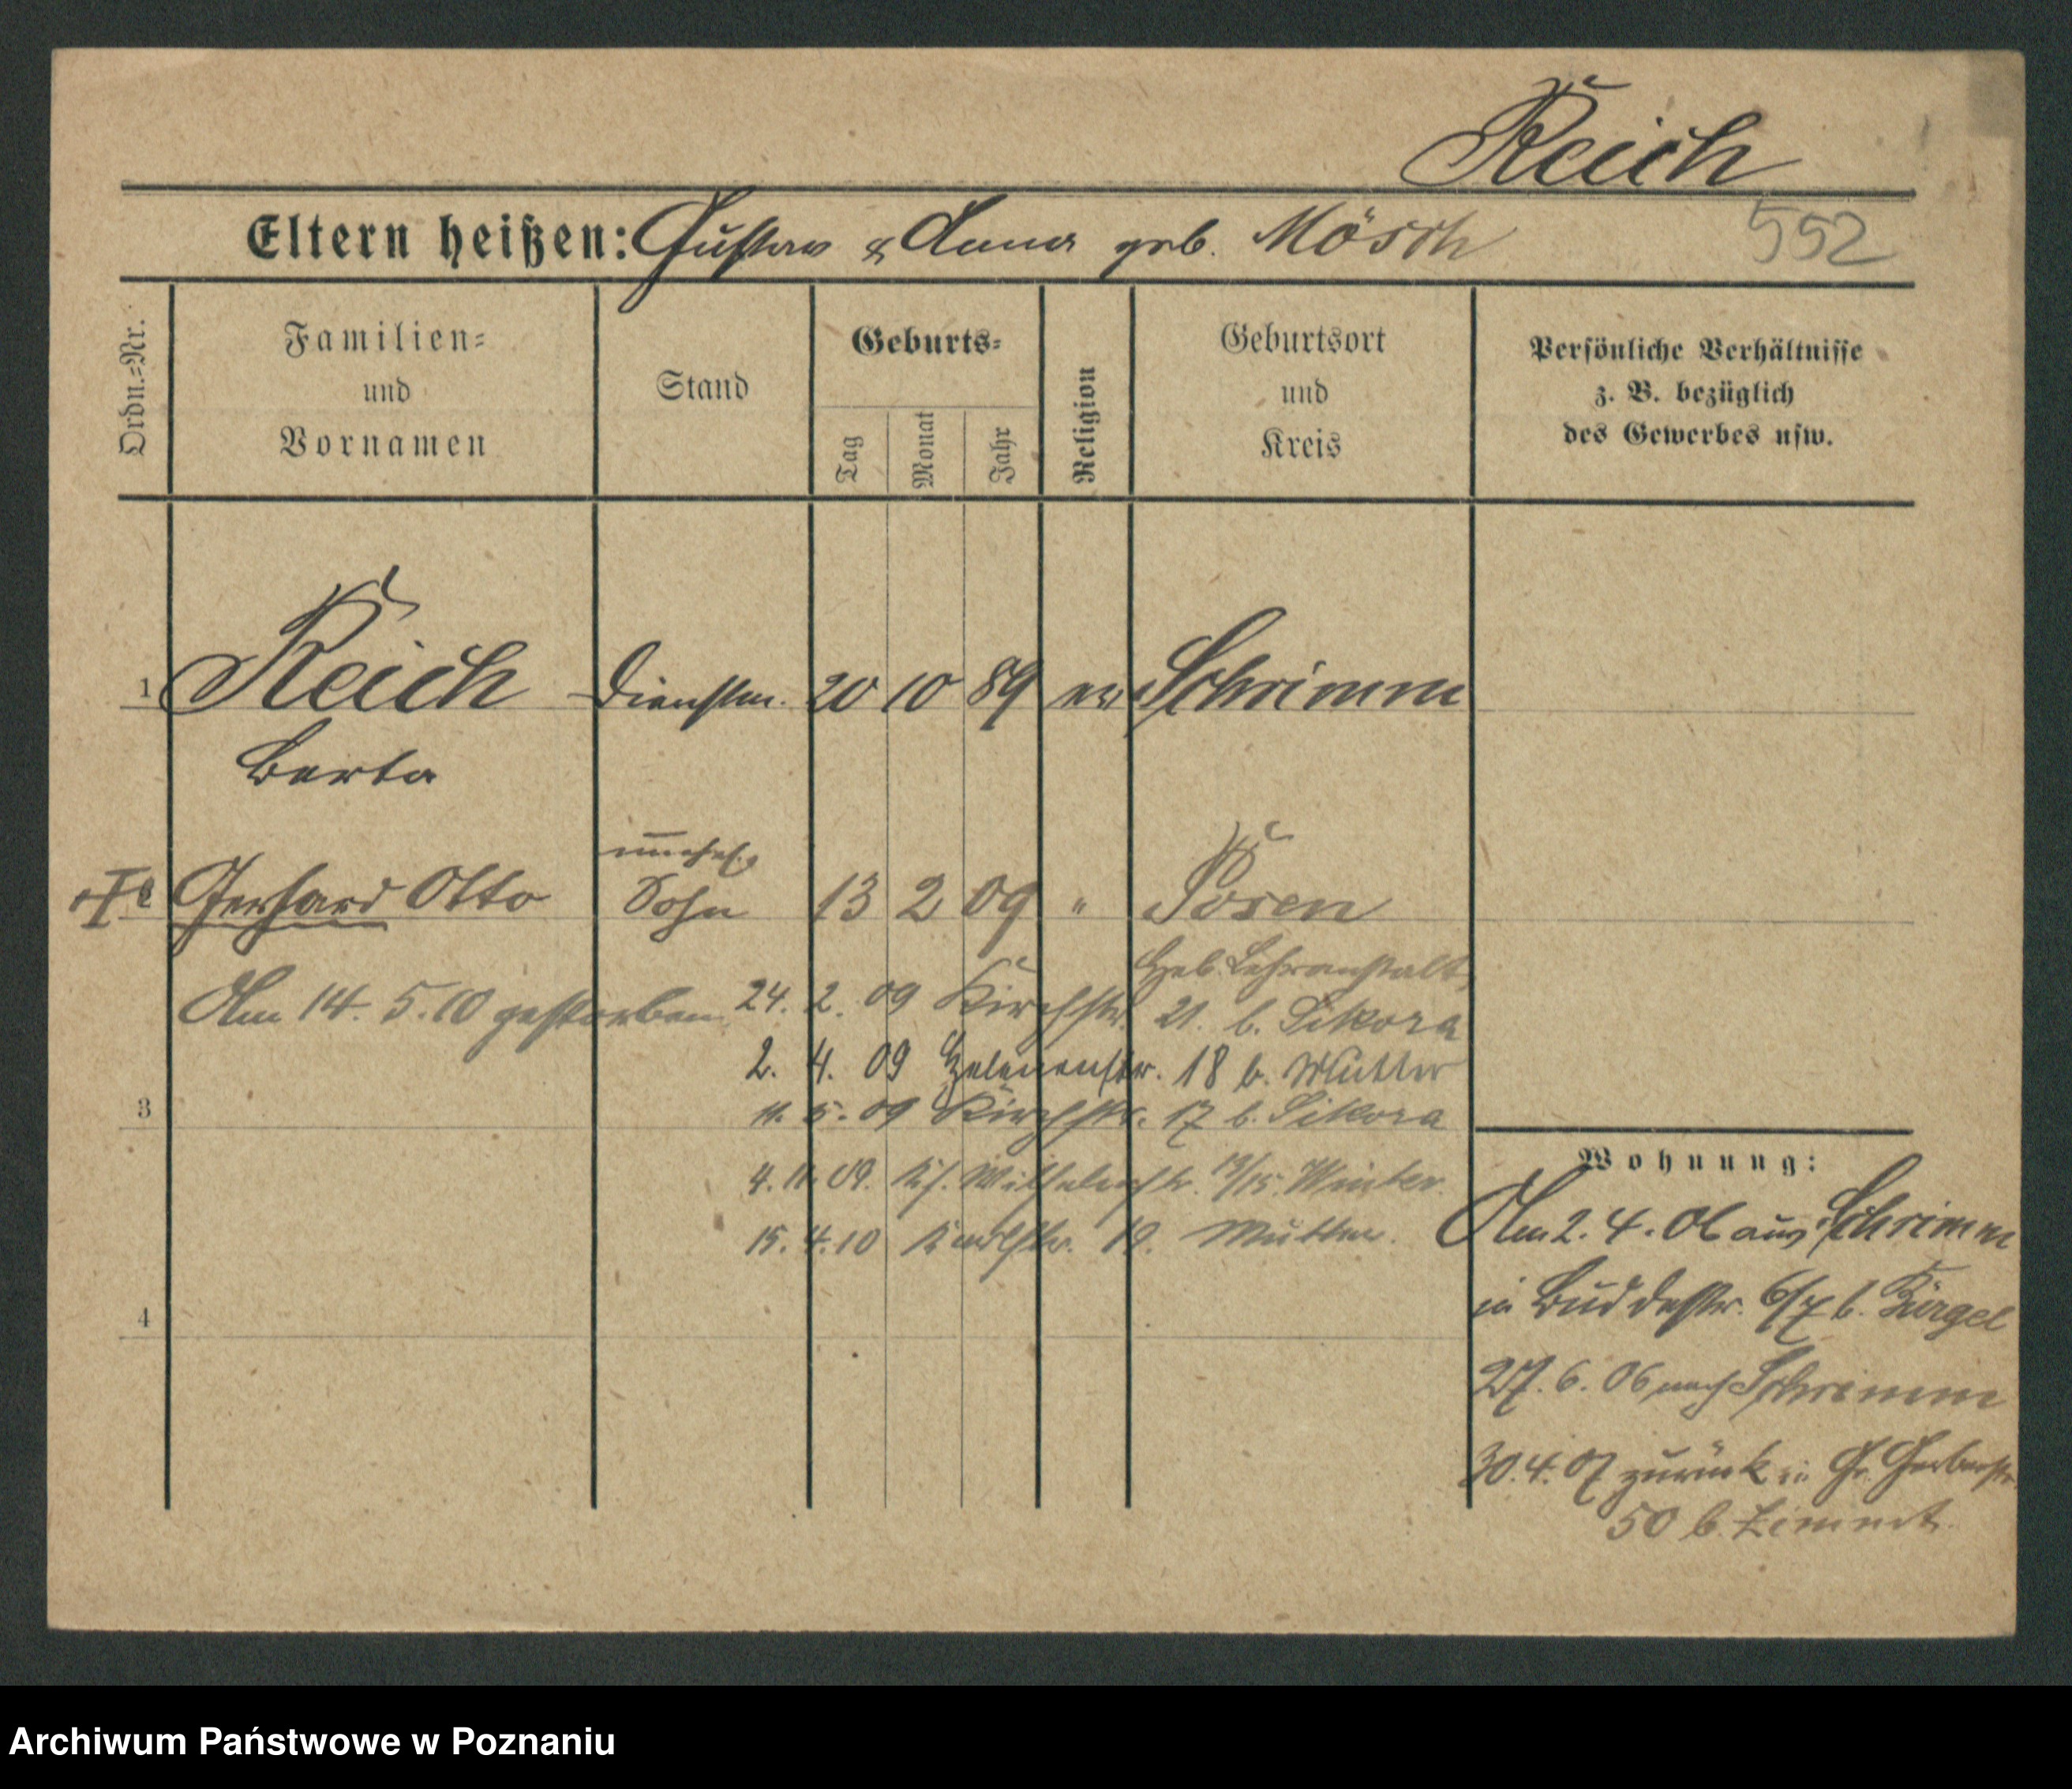 Reich
Eltern heißen: Gustav & Anna geb. Mösch
552
Ordn.=Nr.
Familien=
und
Vornamen
Stand
Geburts=
Tag
Monat
Jahr
Religion
Geburtsort
und
Kreis
Persönliche Verhältnisse
z. B. bezüglich
des Gewerbes usw.
1 Reich Dienstm. 20 10 89 ev Schrimm
Berta
unehel.
Gerhard Otto Sohn 13 2 09 " Posen
Heb. Lehranstalt
Am 14. 5. 10 gestorben 24. 2. 09 Kirchstr. 21. b. Sikora
2. 4. 09 Helenenstr. 18 b. Mutter
3 11. 5. 09 Kirchstr. 17 b. Sikora
4. 11. 09. Kl. Wilhelmstr. Winter.
15. 4. 10 19. Mutter.
4
Wohnung:
Am 2. 4. 06 aus Schrimm
in Buddestr. 6/7 b. Bürgel
27. 6. 06 nach Schrimm
30. 4. 07 zurück in Gr. Gerberstr.
50 b. Zimmt
Archiwum Państwowe w Poznaniu